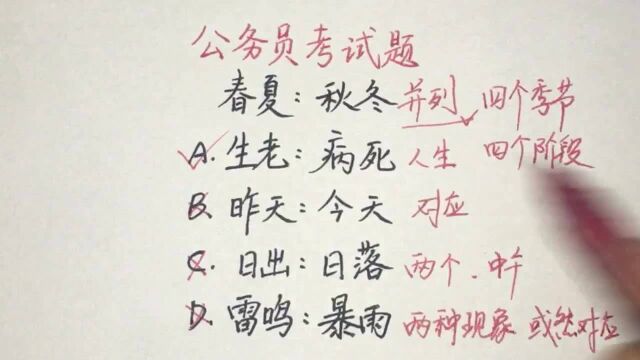 公务员考试题
春夏：秋冬 并列 四个季节
A.生老：病死 人生 四个阶段
B.昨天：今天 对应
C.日出：日落 两个.中午
D.雷鸣：暴雨 两种现象 或然对应